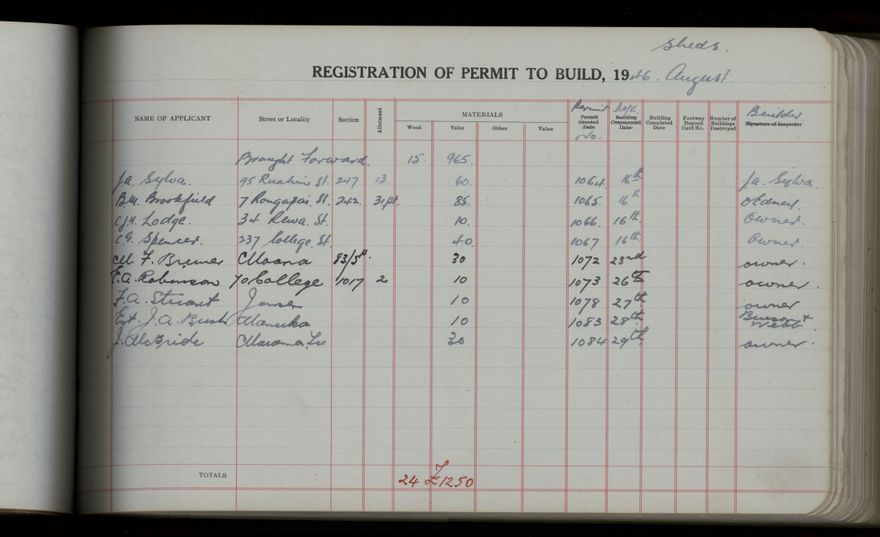 Sheds.
REGISTRATION OF PERMIT TO BUILD, 1946. August.
NAME OF APPLICANT Street or Locality Section Allotment MATERIALS Wood Value Other Value Permit Granted Date No. Date Building Commenced Date Building Completed Date Footway Deposit Card No. Number of Buildings Destroyed Builder Signature of Inspector
Brought Forward. 15. 965.
J.A. Sylva. 95 Ruahine St. 247 13. 60. 1064. 16th J.A. Sylva.
B.M. Brookfield 7 Rongopai St. 242. 31pt. 85. 1065. 16th
C.J.H. Lodge. 34 Rewa St. 10. 1066. 16th. Owner.
C.G. Spencer. 237 College St. 40. 1067 16th Owner.
M. F. Bremer Moana 83/5th. 30 1072 23rd owner.
E.A. Robinson 70 College 1017 2 10 1073 26th owner.
F.A. Stuart Jensen 10 1078 27th. owner
Est. J.A. Bush Manuka 10 1083 28th. Benson & Webb
J. McBride Marama Tce 30 1084 29th. owner.
TOTALS 24 £1250